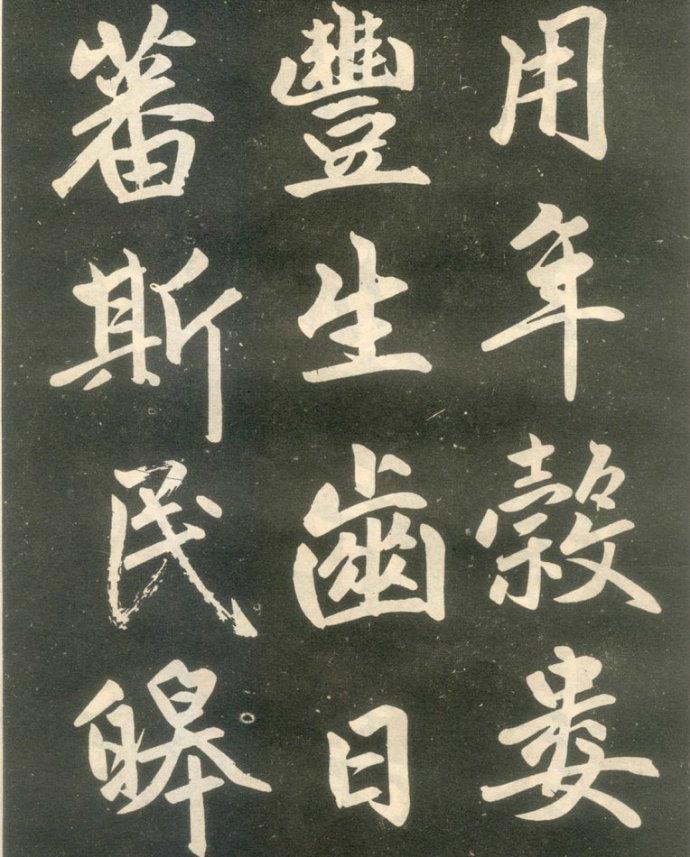 用年穀娄
豐生齒日
蕃斯民皞